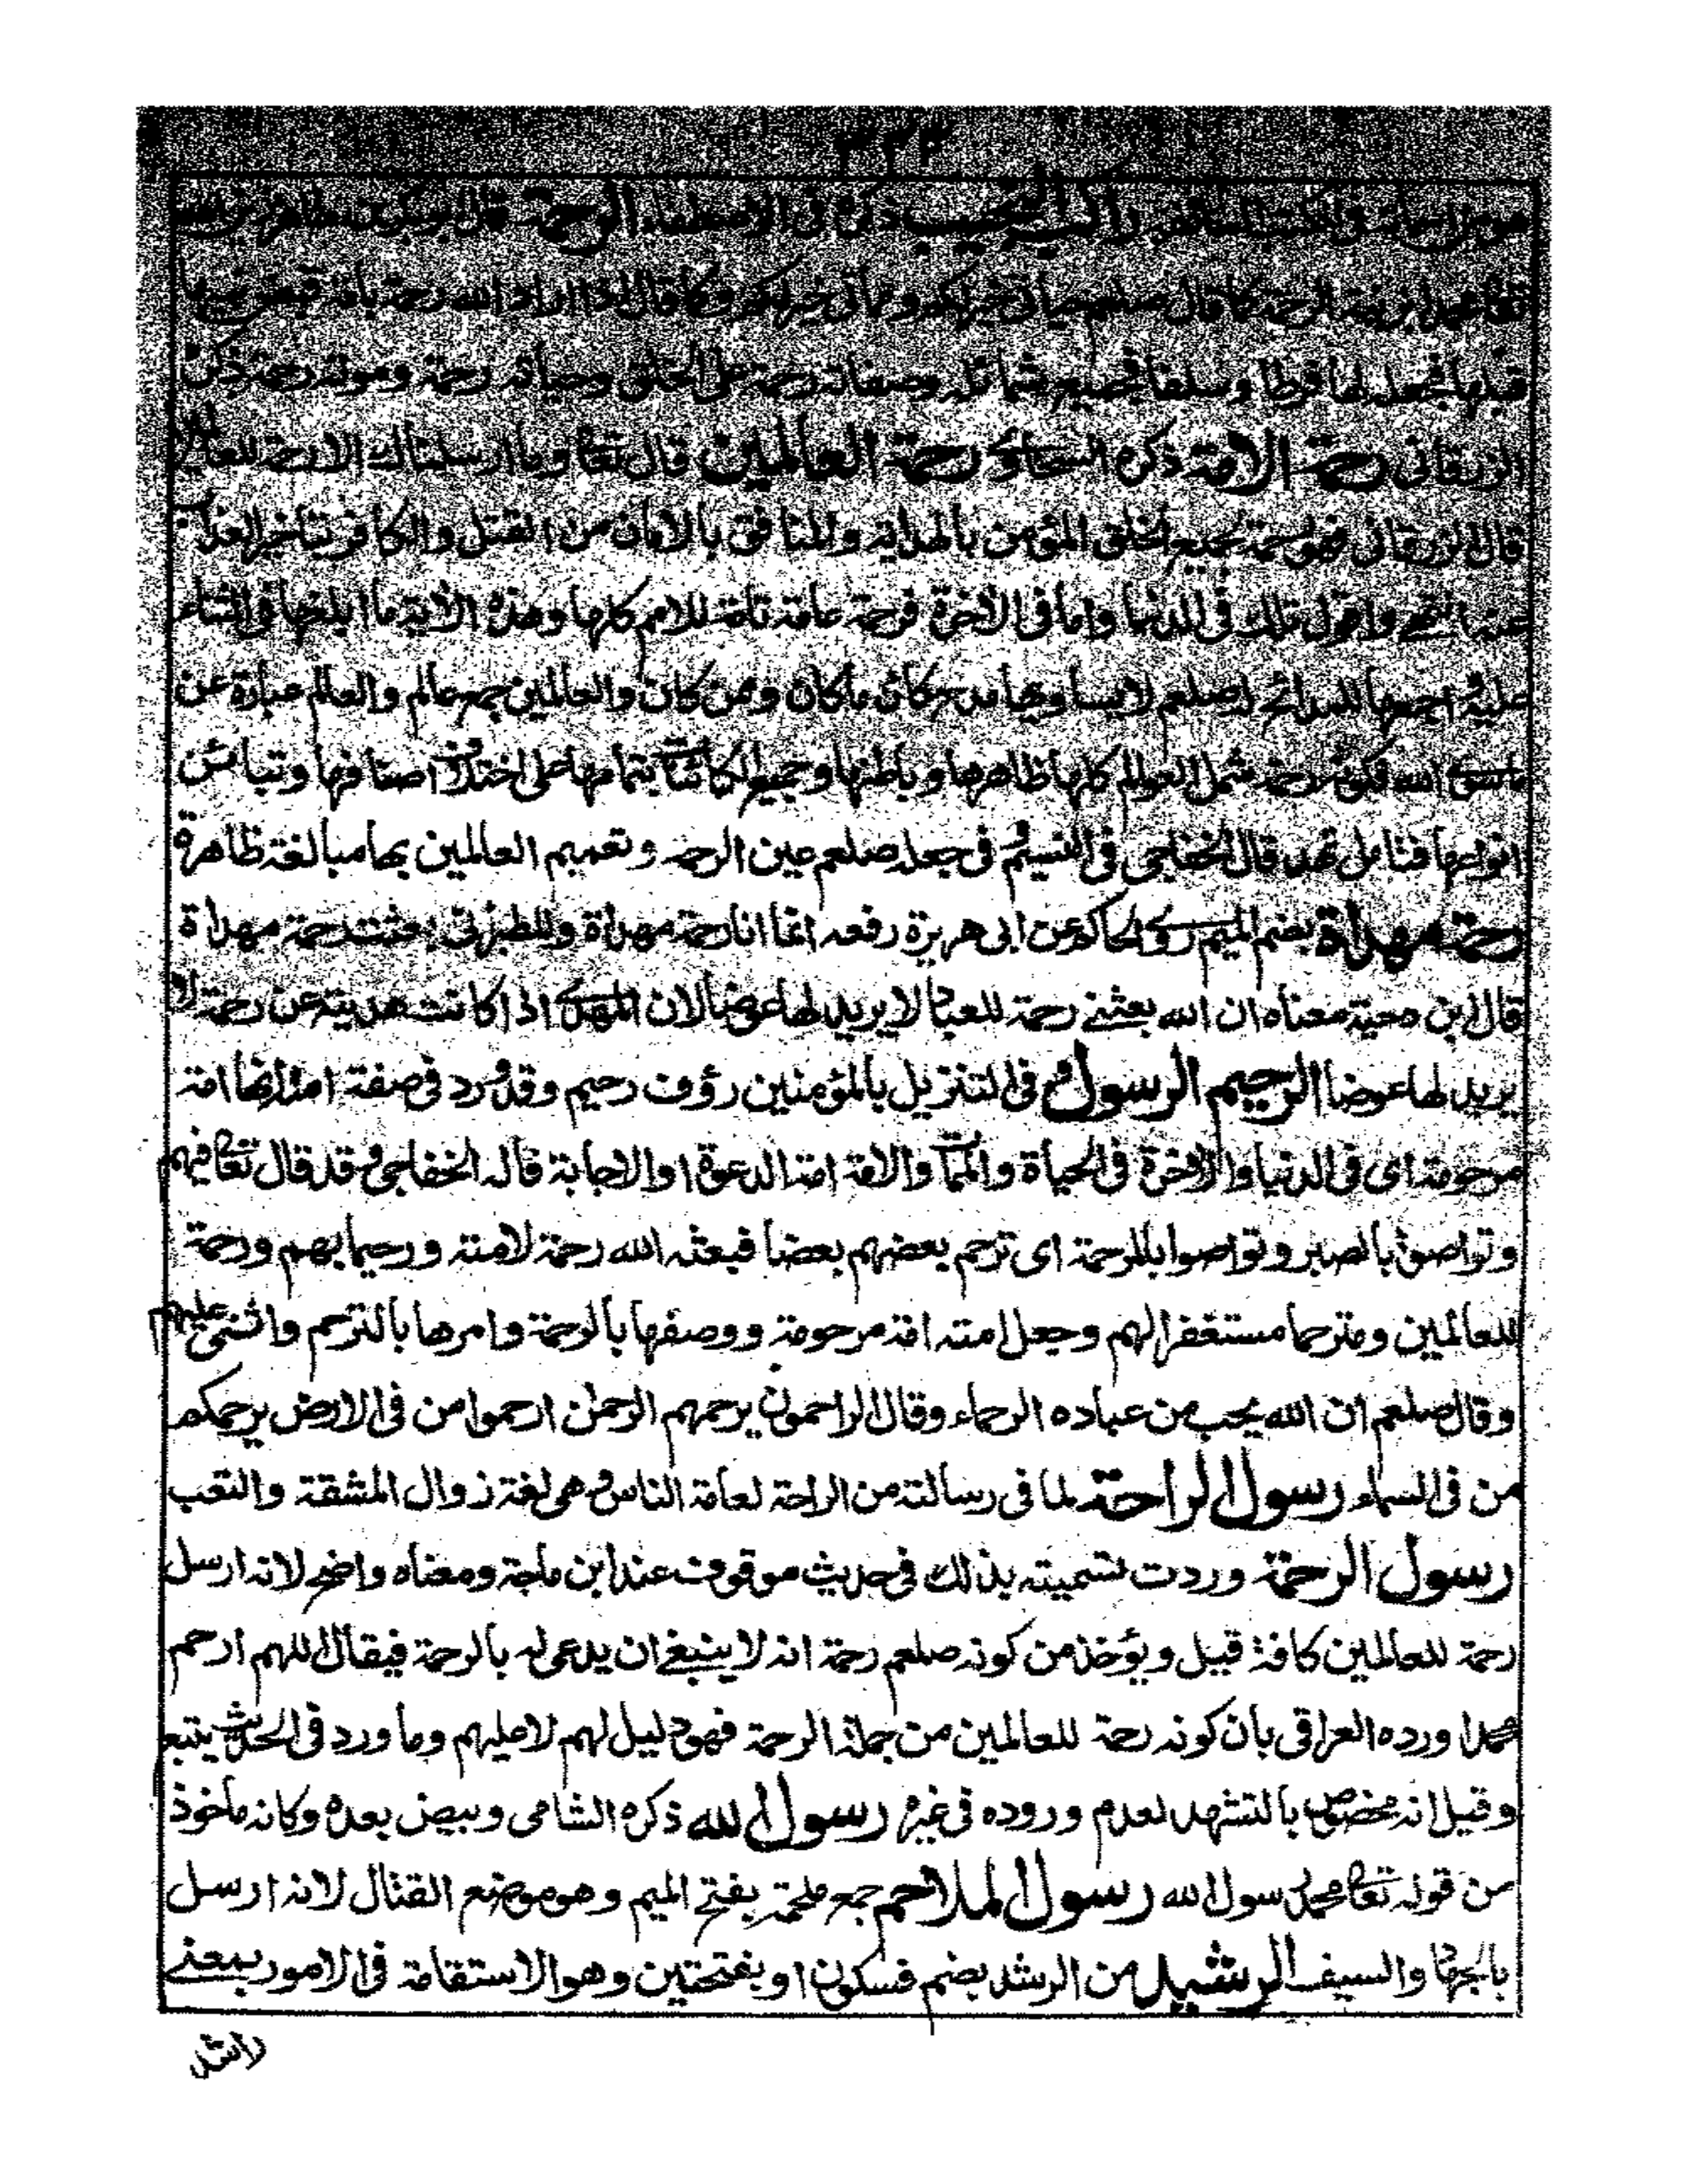 راكب النجيب ذكره فى الاصطفاء الرحمة قال ابو بكر بن طاهر
الرحمة كما قال صلعم حياتى خير لكم ومماتى خير لكم وكما قال اذا اراد الله رحمة بامة قبض نبيها
قبلها فجعله لها فرطا وسلفا فجميع شمائله وصفاته رحمة على الخلق وحياته رحمة وموته رحمة ذكره
الزرقانى رحمة الامة ذكره السخاوى رحمة العالمين قال تعالى وما ارسلناك الا رحمة للعالمين
قال الزرقانى فهو رحمة لجميع الخلق المؤمن بالهداية والمنافق بالامان من القتل والكافر بتاخير العذاب
عنه انتهى واقول ذلك فى الدنيا واما فى الاخرة فرحمة عامة تامة للامم كلها وهذه الاية ما ابلغها فى الثناء
عليه واجمعها للمدائح له صلعم لا يساويها مدح كائن ما كان ومن كان والعالمين جمع عالم والعالم عبارة عن
ما سوى الله فكونه رحمة شمل العوالم كلها ظاهرها وباطنها وجميع الكائنات بتمامها على اختلاف اصنافها وتباين
انواعها فتامل تهد قال الخفاجى فى النسيم وفى جعله صلعم عين الرحمة وتعميم العالمين بها مبالغة ظاهرة
رحمة مهداة بضم الميم روى الحاكم عن ابى هريرة رفعه انما انا رحمة مهداة وللطبرانى بعثت رحمة مهداة
قال ابن دحية معناه ان الله بعثنى رحمة للعباد لا يريد لها عوضا لان المهدى اذا كانت هديته عن رحمة لا
يريد لها عوضا الرحيم الرسول وفى التنزيل بالمؤمنين رؤف رحيم وقد ورد فى صفة امته انها امة
مرحومة اى فى الدنيا والاخرة فى الحياة والممات والامة امة الدعوة او الاجابة قاله الخفاجى وقد قال تعالى فيهم
وتواصوا بالصبر وتواصوا بالمرحمة اى ترحم بعضهم بعضا فبعثه الله رحمة لامته ورحيما بهم ورحمة
للعالمين ومترحما مستغفرا لهم وجعل امته امة مرحومة ووصفها بالرحمة وامرها بالترحم واثنى عليهم
وقال صلعم ان الله يحب من عباده الرحماء وقال الراحمون يرحمهم الرحمن ارحموا من فى الارض يرحمكم
من فى السماء رسول الراحة لما فى رسالته من الراحة لعامة الناس وهى لغة زوال المشقة والتعب
رسول الرحمة وردت تسميته بذلك فى حديث موقوف عند ابن ماجة ومعناه واضح لانه ارسل
رحمة للعالمين كافة قيل ويؤخذ من كونه صلعم رحمة انه لا ينبغى ان يدعى له بالرحمة فيقال اللهم ارحم
محمدا ورده العراقى بان كونه رحمة للعالمين من جملة الرحمة فهو دليل لهم لا عليهم وما ورد فى الحديث يتبع
وقيل انه مخصوص بالتشهد لعدم وروده فى غيره رسول الله ذكره الشامى وبيض بعده وكانه ماخوذ
من قوله تعالى محمد رسول الله رسول الملاحم جمع ملحمة بفتح الميم وهو موضع القتال لانه ارسل
بالجهاد والسيف الرشيد من الرشد بضم فسكون او بفتحتين وهو الاستقامة فى الامور بمعنى
راشد